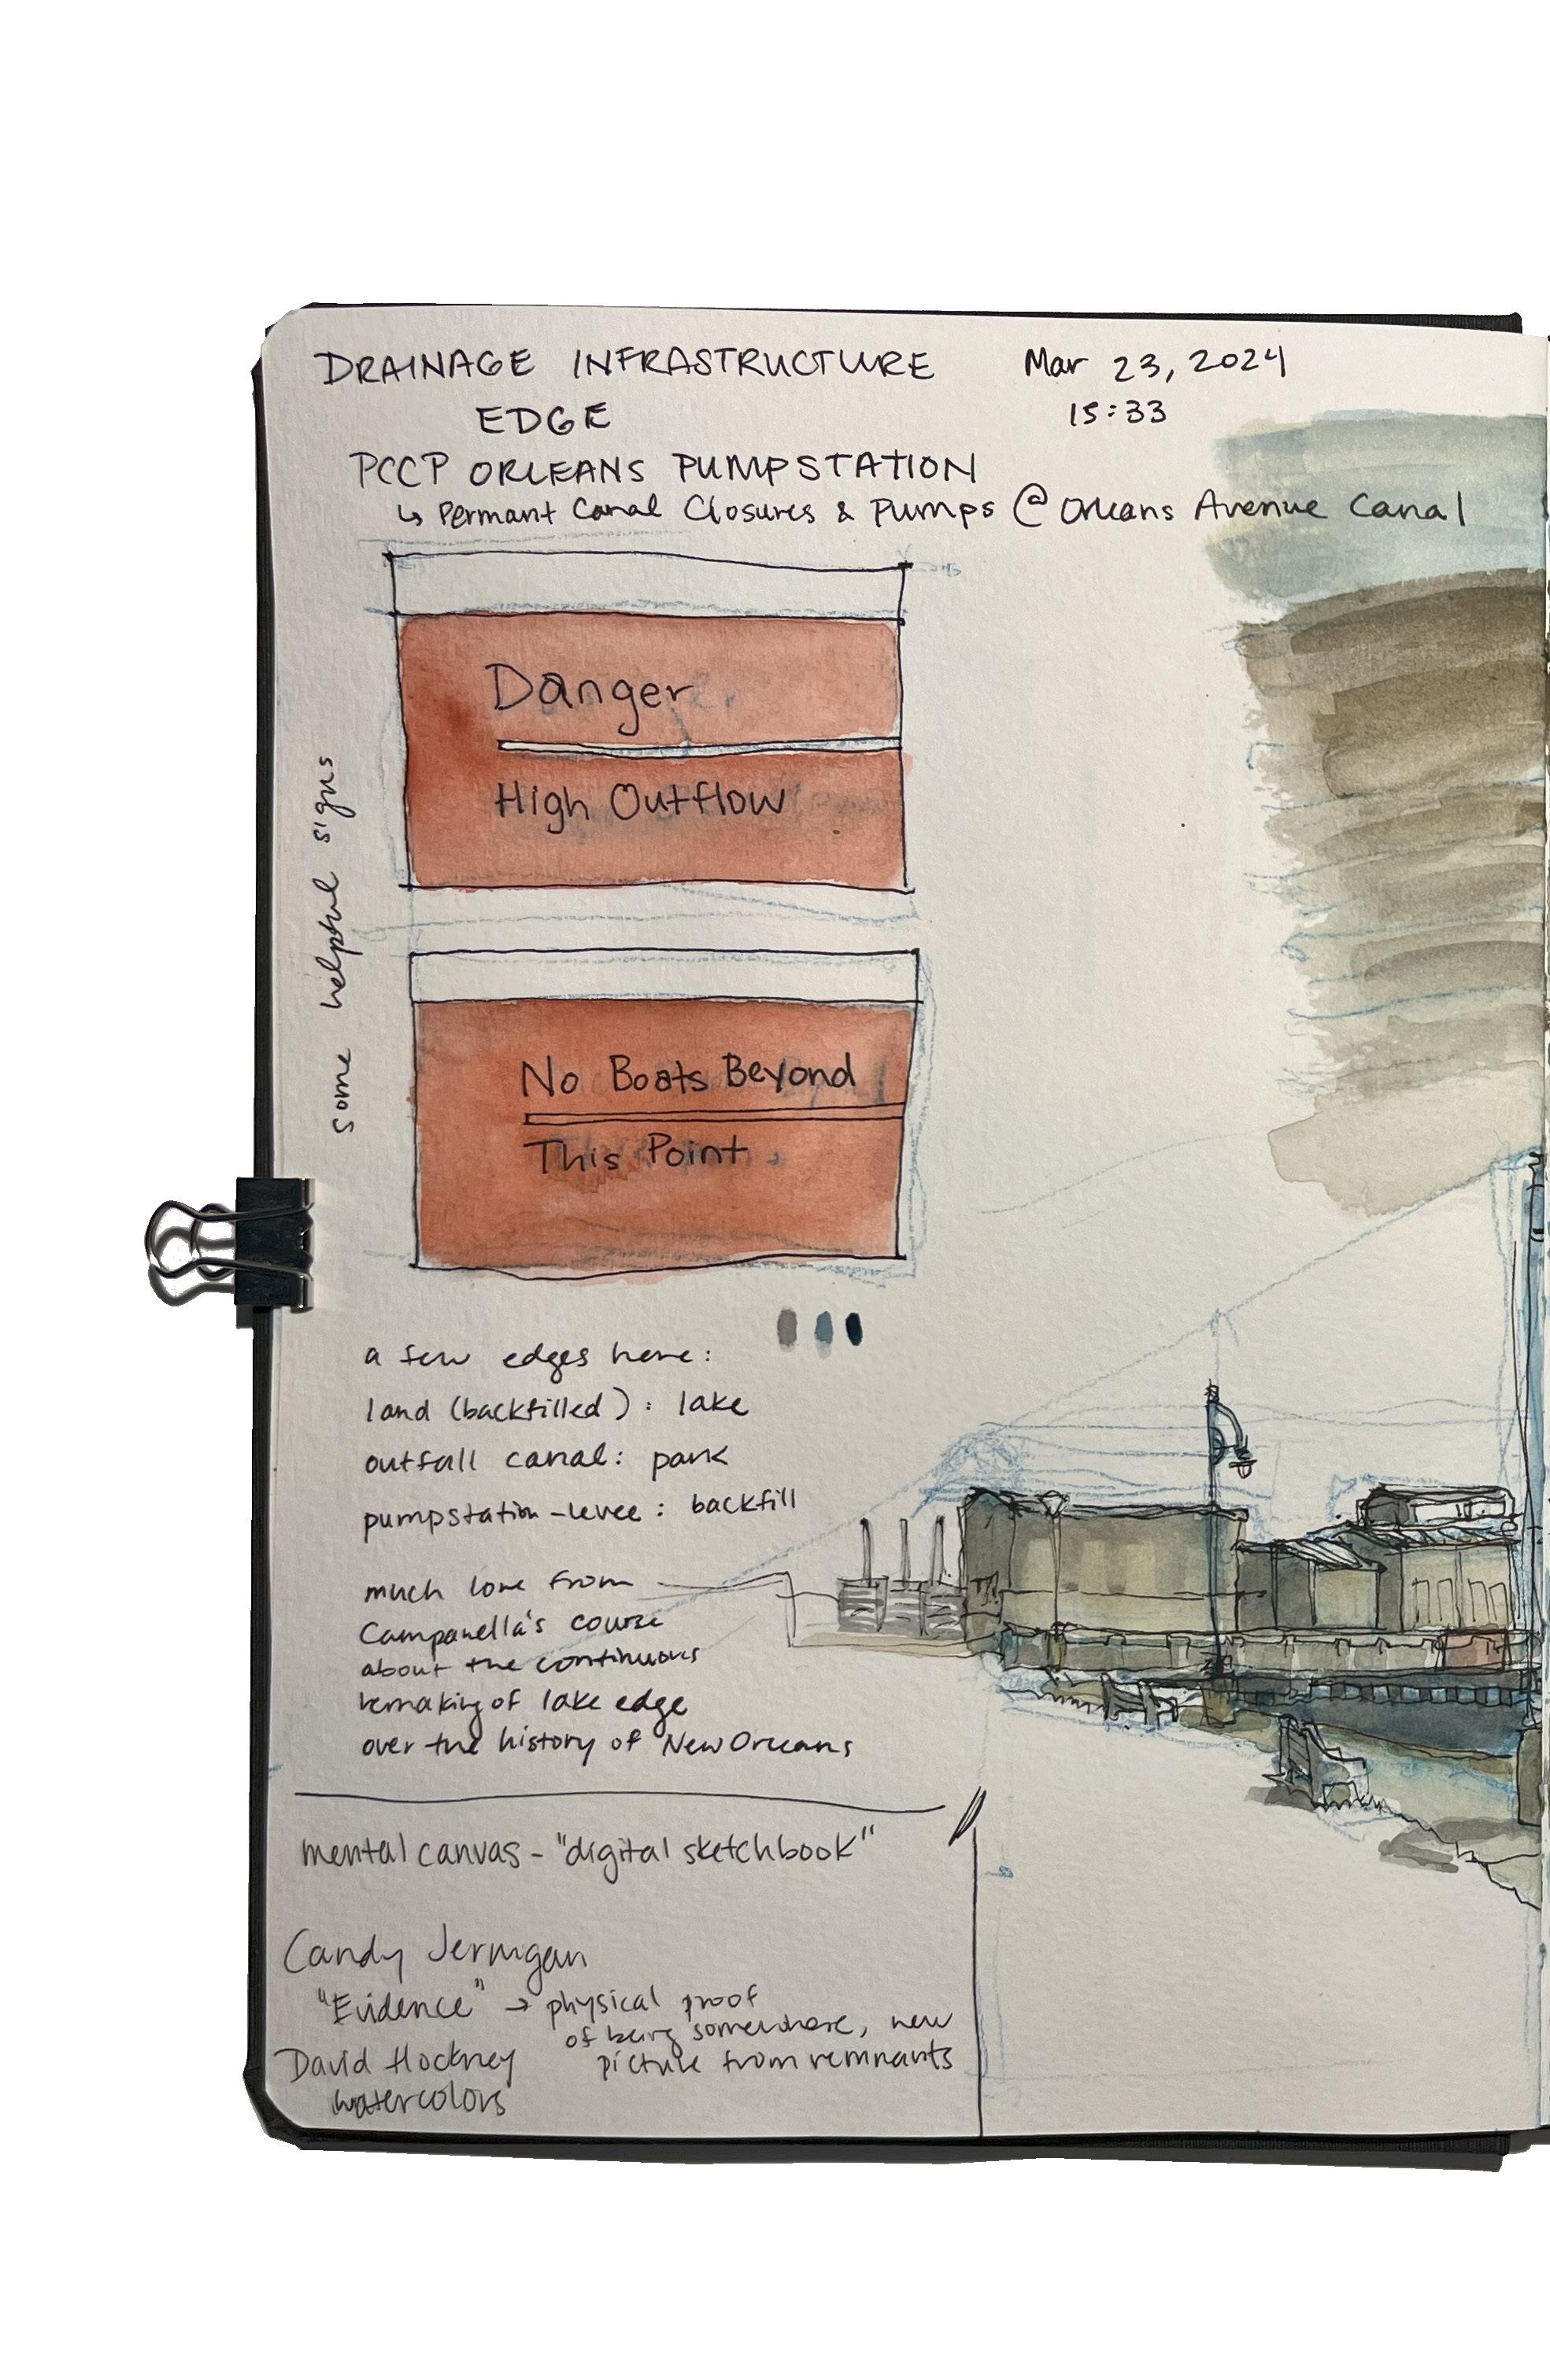 DRAINAGE INFRASTRUCTURE
EDGE
Mar 23, 2024
15:33
PCCP ORLEANS PUMPSTATION
↳ Permant Canal Closures & Pumps @ Orleans Avenue Canal
some helpful signs
Danger
High Outflow
No Boats Beyond
This Point
a few edges here:
land (backfilled) : lake
outfall canal : park
pumpstation-levee : backfill
much love from
Campanella's course
about the continuous
remaking of lake edge
over the history of New Orleans
mental canvas - "digital sketchbook"
Candy Jernigan
"Evidence" → physical proof
of being somewhere, new
picture from remnants
David Hockney
watercolors